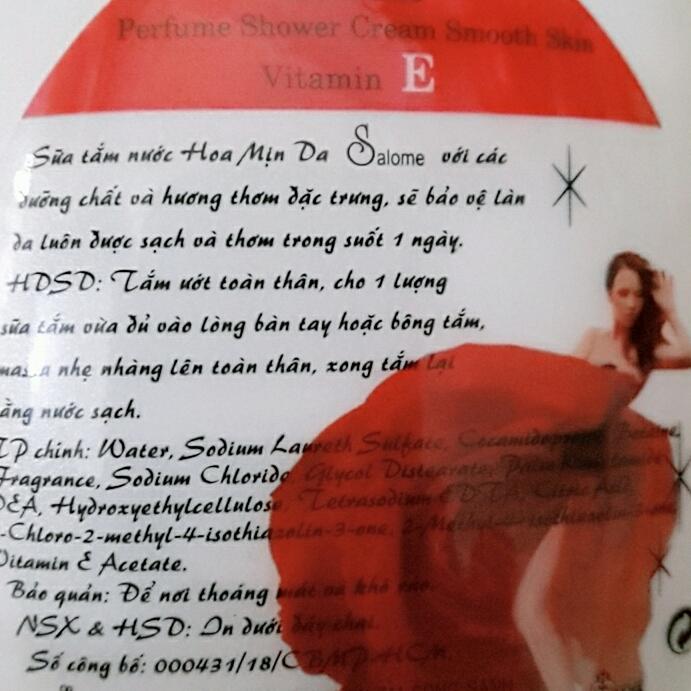 Perfume Shower Cream Smooth Skin
Vitamin E
Sữa tắm nước Hoa Mịn Da Salome với các
dưỡng chất và hương thơm đặc trưng, sẽ bảo vệ làn
da luôn được sạch và thơm trong suốt 1 ngày.
HDSD: Tắm ướt toàn thân, cho 1 lượng
sữa tắm vừa đủ vào lòng bàn tay hoặc bông tắm,
nhẹ nhàng lên toàn thân, xong tắm lại
ằng nước sạch.
TP chính: Water, Sodium Laureth Sulfate, Cocamidopropyl Betaine,
Fragrance, Sodium Chloride, Glycol Distearate,
DEA, Hydroxyethylcellulose, Tetrasodium EDTA, Citric Acid,
-Chloro-2-methyl-4-isothiazolin-3-one, 2-Methyl-4-isothiazolin-3-one,
Vitamin E Acetate.
Bảo quản: Để nơi thoáng mát và khô ráo.
NSX & HSD: In dưới đáy chai.
Số công bố: 000431/18/CBMP-HCM